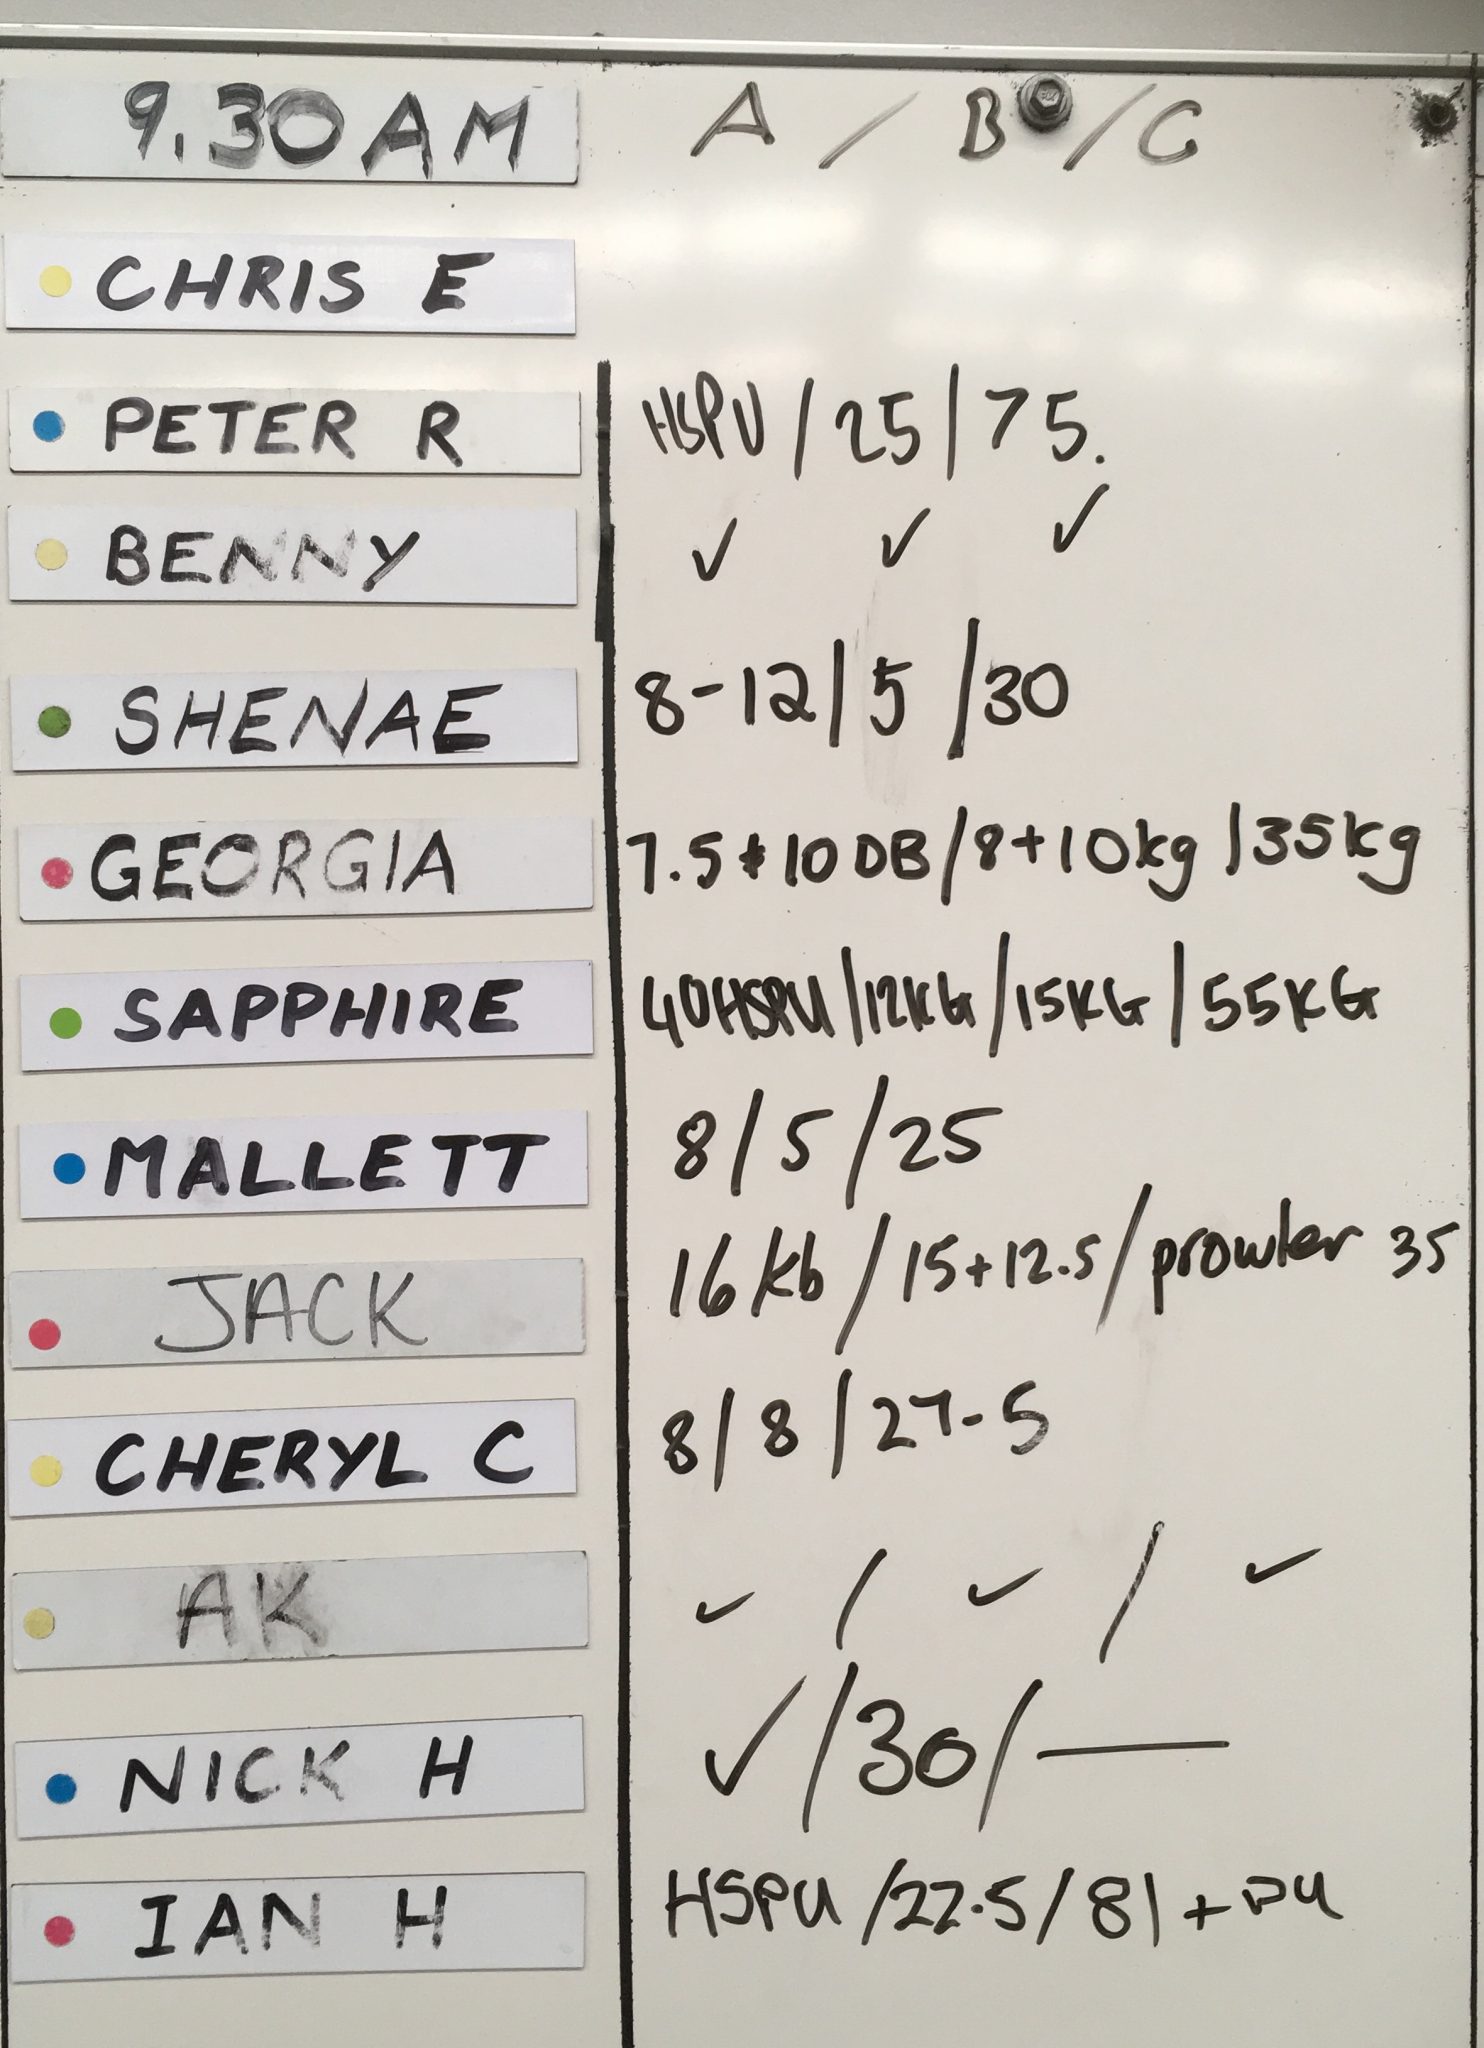 9.30AM A / B / C
CHRIS E
PETER R HSPU / 25 / 75.
BENNY ✓ ✓ ✓
SHENAE 8-12 / 5 / 30
GEORGIA 7.5 + 10 DB / 8 + 10kg / 35kg
SAPPHIRE 40HSPU / 12KG / 15KG / 55KG
MALLETT 8 / 5 / 25
JACK 16 kb / 15 + 12.5 / prowler 35
CHERYL C 8 / 8 / 27.5
AK ✓ / ✓ / ✓
NICK H ✓ / 30 / —
IAN H HSPU / 22.5 / 81 +